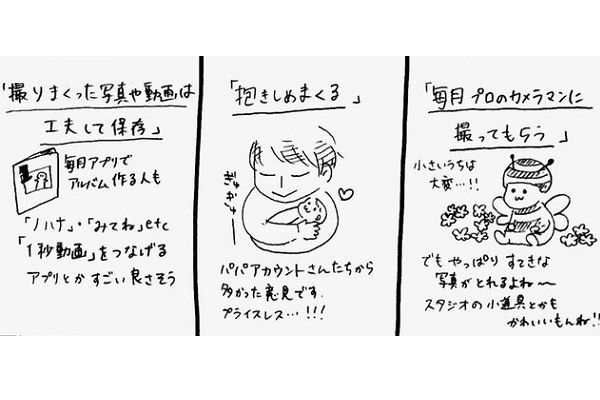 「撮りまくった写真や動画は
工夫して保存」
毎月アプリで
アルバム作る人も
「ノハナ」・「みてね」etc
「1秒動画」をつなげる
アプリとかすごい良さそう
「抱きしめまくる」
ぎゅぎゅー
パパアカウントさんたちから
多かった意見です.
プライスレス…!!!
「毎月プロのカメラマンに
撮ってもらう」
小さいうちは
大変…!!
でもやっぱりすてきな
写真がとれるよね〜
スタジオの小道具とかも
かわいいもんね!!